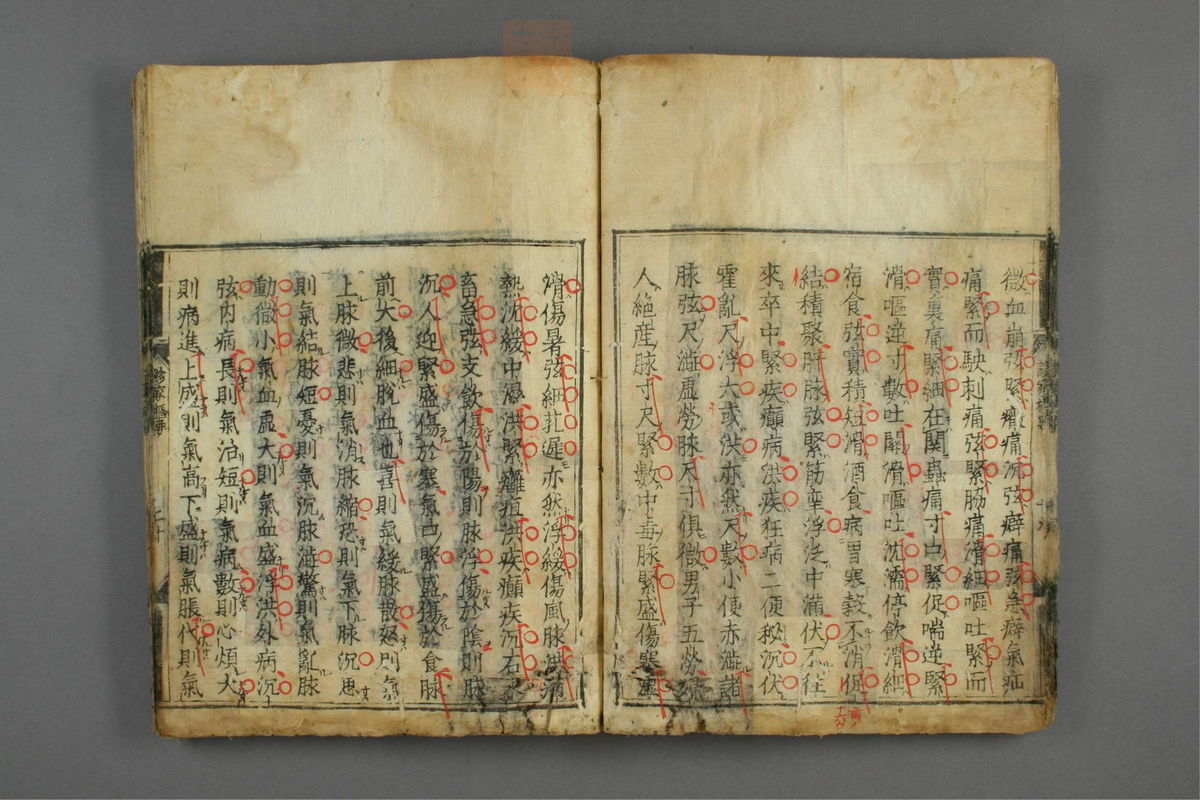 微血崩弦緊癥痛沉弦癖痛弦急癖氣疝
痛緊而駃刺痛弦緊脇痛滑細嘔吐緊而
實裏痛緊細在關蟲痛寸口緊促喘逆緊
滑嘔逆寸數吐關滑嘔吐沈濡停飲滑細
宿食弦實積短滑酒食病胃寒穀不消促
結積聚肝脉弦緊筋攣浮洪中滿伏不往
來卒中緊疾癲病洪疾狂病二便秘沉伏
霍亂尺浮大或洪亦然尺數小便赤澁諸
脉弦尺澁虛勞脉尺寸俱微男子五勞婦
人絕産脉寸尺緊數中毒脉緊盛傷寒虛
滑傷暑弦細芤遲亦然浮緩傷風脉洪滑
熱沈緩中濕洪緊癰疽洪疾癲疾沉石水
畜急弦支飲傷於陽則脉浮傷於陰則脉
沉人迎緊盛傷於寒氣口緊盛傷於食脉
前大後細脫血也喜則氣緩脉散怒則氣
上脉微悲則氣消脉縮恐則氣下脉沉思
則氣結脉短憂則氣沉脉澁驚則氣亂脉
動微小氣血虛大則氣血盛浮洪外病沉
弦内病長則氣治短則氣病數則心煩大
則病進上成則氣高下盛則氣脹代則氣